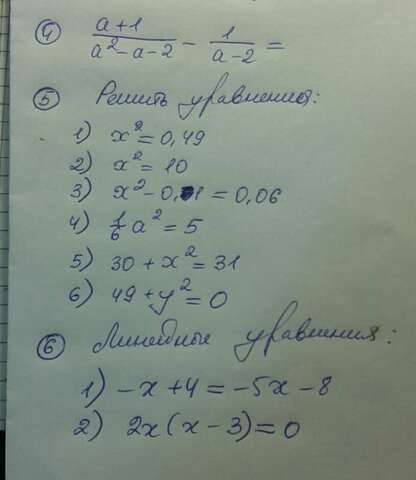 ④ (a+1)/(a²-a-2) - 1/(a-2) =
⑤ Решить уравнения:
1) x² = 0,49
2) x² = 10
3) x² - 0,01 = 0,06
4) 1/6 a² = 5
5) 30 + x² = 31
6) 49 + y² = 0
⑥ Линейные уравнения:
1) -x + 4 = -5x - 8
2) 2x(x - 3) = 0